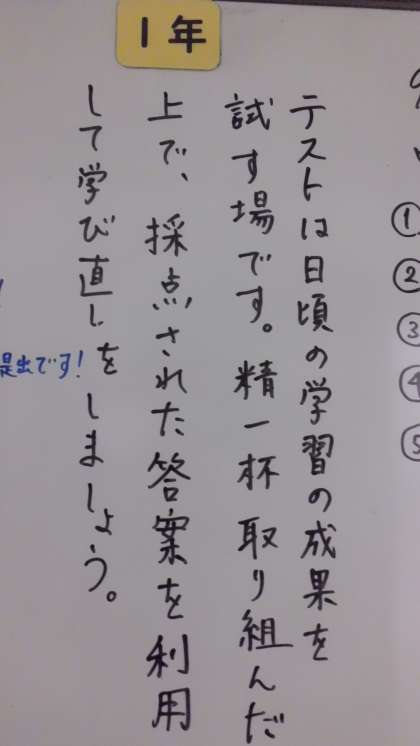 1年
テストは日頃の学習の成果を
試す場です。精一杯取り組んだ
上で、採点された答案を利用
して学び直しをしましょう。
提出です!
①
②
③
④
⑤